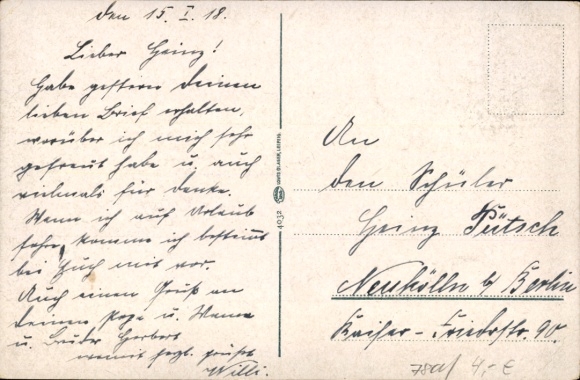 den 15. I. 18.
Lieber Heinz!
Habe gestern Deinen
lieben Brief erhalten,
worüber ich mich sehr
gefreut habe u. auch
vielmals für danke.
Wenn ich auf Urlaub
fahre, komme ich bestimmt
bei Euch mit vor.
Auch einen Gruß an
Deinen Papa u. Mama
u. Bruder Herbert
Willi.
4032
An
den Schüler
Heinz Pütsch
Neukölln b/ Berlin
Kaiser-Friedrstr. 90.
4,- €